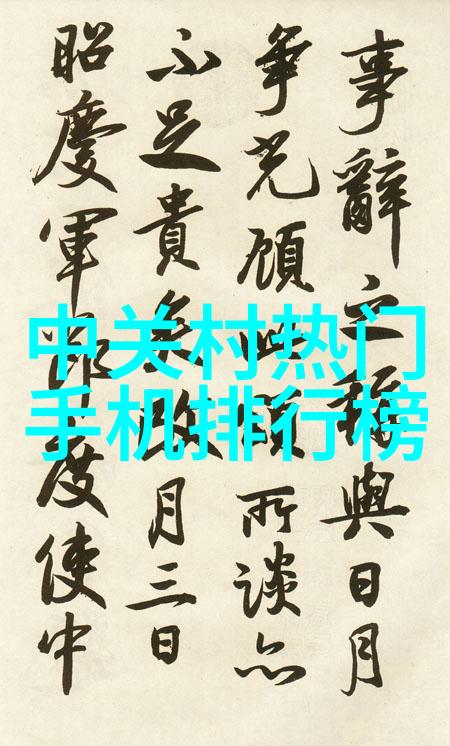 中关村热门
手机排行榜
事辭之與日月
争光顧此所談亦
不足貴矣改月三日
昭慶軍節度使中